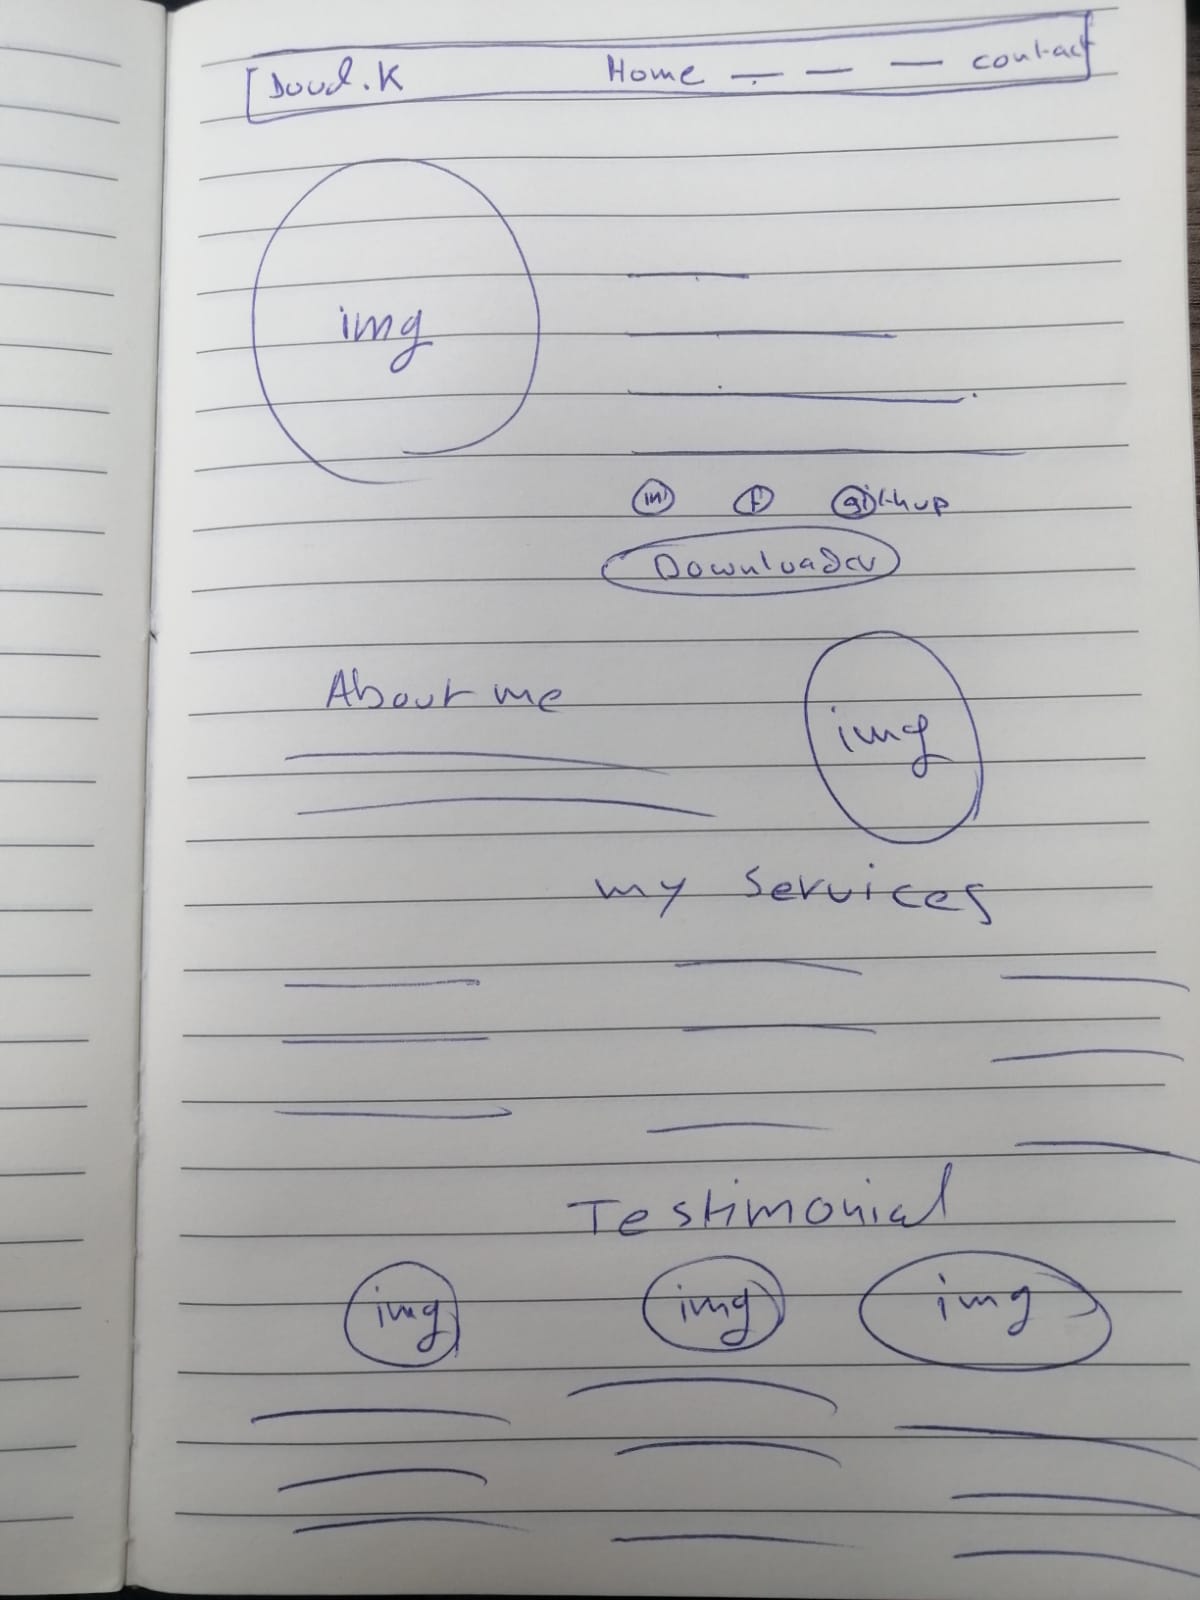 Doud.K Home contact
img
in f github
Download cv
About me
img
my services
Testimonial
img img img